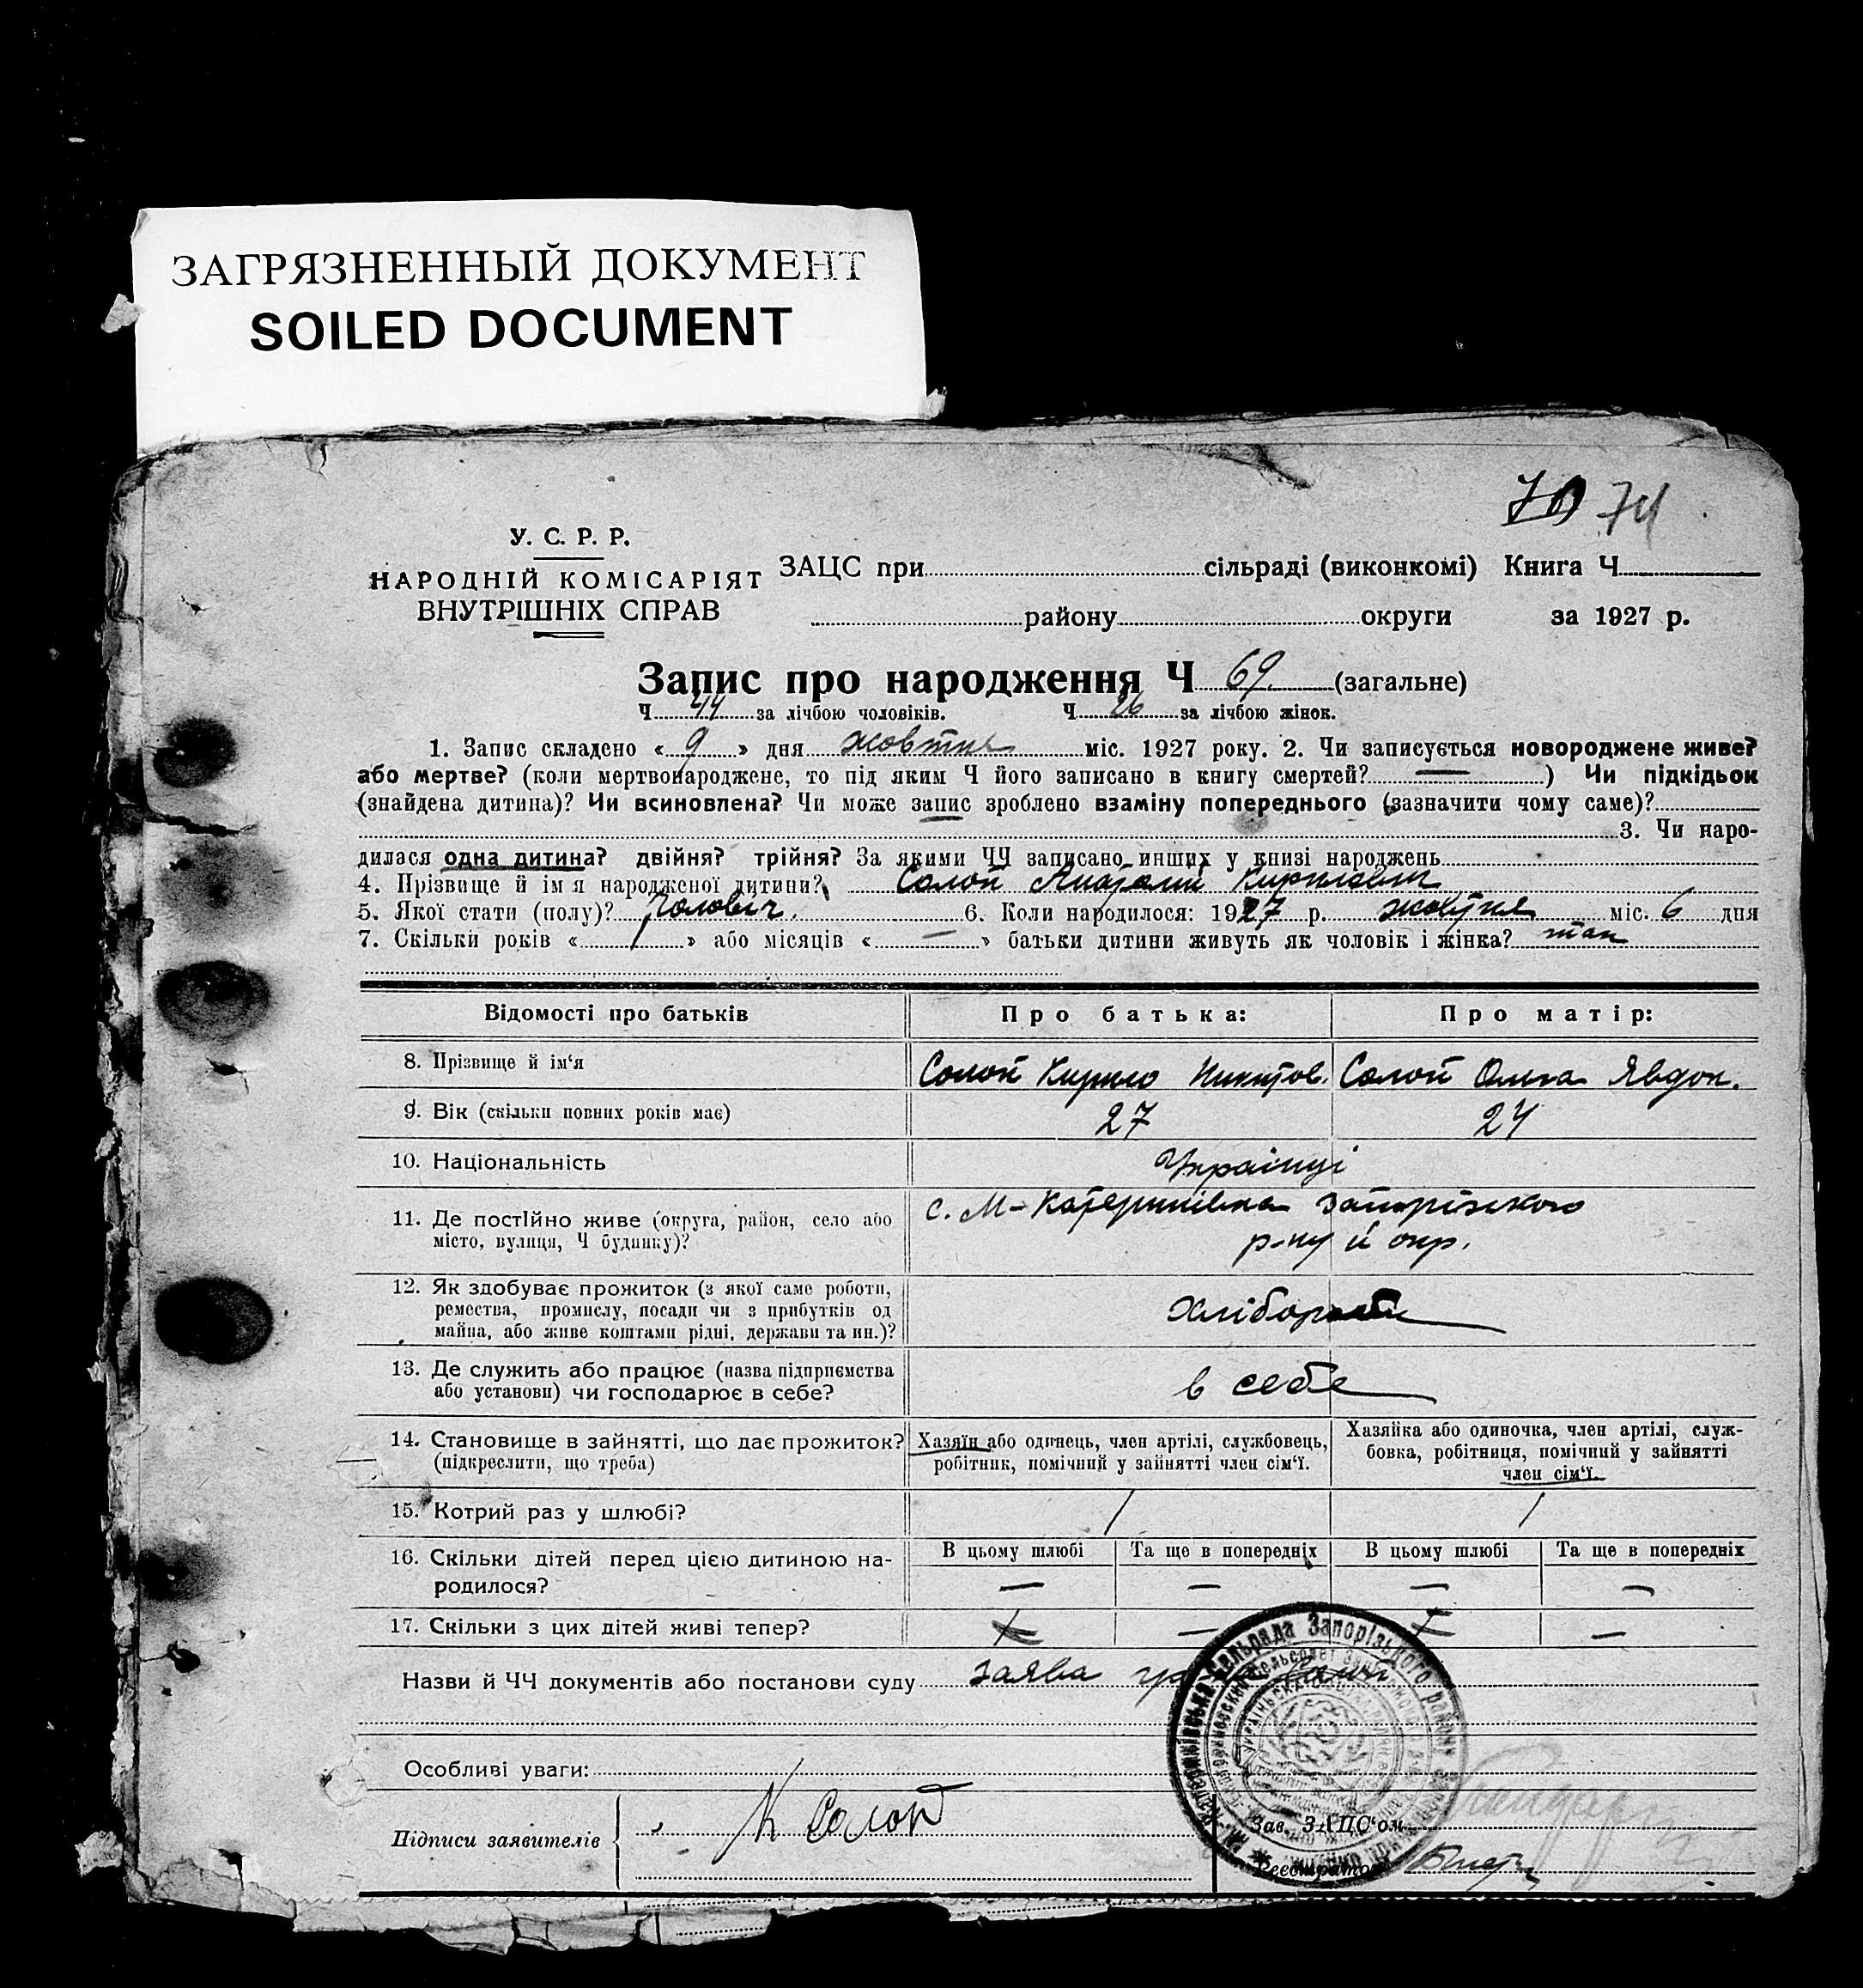 ЗАГРЯЗНЕННЫЙ ДОКУМЕНТ
SOILED DOCUMENT
70 74
У. С. Р. Р.
НАРОДНІЙ КОМІСАРІЯТ
ВНУТРІШНІХ СПРАВ
ЗАЦС при сільраді (виконкомі) Книга Ч
району округи за 1927 р.
Запис про народження Ч 69 (загальне)
Ч 44 за лічбою чоловіків. Ч 26 за лічбою жінок.
1. Запис складено « 9 » дня жовтня міс. 1927 року. 2. Чи записується новороджене живе?
або мертве? (коли мертвонароджене, то під яким Ч його записано в книгу смертей? — ) Чи підкідьок
(знайдена дитина)? Чи всиновлена? Чи може запис зроблено взаміну попереднього (зазначити чому саме)?
3. Чи наро-
дилася одна дитина? двійня? трійня? За якими ЧЧ записано инших у книзі народжень
4. Прізвище й ім я народженої дитини? Солоп Анатолий Кирилович
5. Якої стати (полу)? Чоловіч. 6. Коли народилося: 1927 р. жовтня міс. 6 дня
7. Скільки років « / » або місяців « — » батьки дитини живуть як чоловік і жінка? так
Відомості про батьків Про батька: Про матір:
8. Прізвище й ім'я Солоп Кирило Никитов. Солоп Ольга Явдок.
9. Вік (скільки повних років має) 27 24
10. Національність Українці
11. Де постІйно живе (округа, район, село або с. М-Катеринівка Запорізького
місто, вулиця, Ч будинку)? р-ну й окр.
12. Як здобуває прожиток (з якої саме роботи,
ремества, промислу, посади чи з прибутків од хлібороби
майна, або живе коштами рідні, держави та ин.)?
13. Де служить або працює (назва підприємства в себе
або установи) чи господарює в себе?
14. Становище в зайнятті, що дає прожиток? Хазяїн або одинець, член артілі, службовець, Хазяйка або одиночка, член артілі, служ-
(підкреслити, що треба) робітник, помічний у зайнятті член сім'ї. бовка, робітниця, помічний у зайнятті
член сім'ї.
15. Котрий раз у шлюбі? / /
16. Скільки дітей перед цією дитиною на- В цьому шлюбі Та ще в попередніх В цьому шлюбі Та ще в попередніх
родилося? — — — —
17. Скільки з цих дітей живі тепер? — —
Назви й ЧЧ документів або постанови суду заява
Особливі уваги:
Підписи заявителів К Солоп
Зав. ЗАЦС'ом
Реєстратор
Сельрада Запорізького району